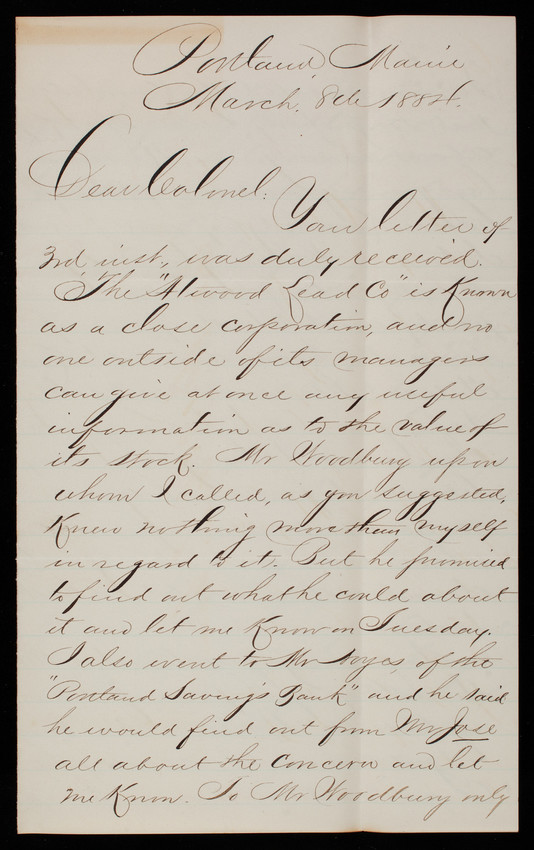 Portland, Maine
March. 8th 1884.
Dear Colonel:
Your letter of
3rd inst, was duly received.
"The "Atwood Lead Co" is Known
as a close corporation, and no
one outside of its managers
can give at once any useful
information as to the value of
its stock. Mr Woodbury upon
whom I called, as you suggested,
Knew nothing more than myself
in regard to it. But he promised
to find out what he could about
it and let me Know on Tuesday.
I also went to Mr Noyes, of the
"Portland Savings Bank" and he said
he would find out from Mr Jose
all about the concern and let
me Know. So Mr Woodbury only